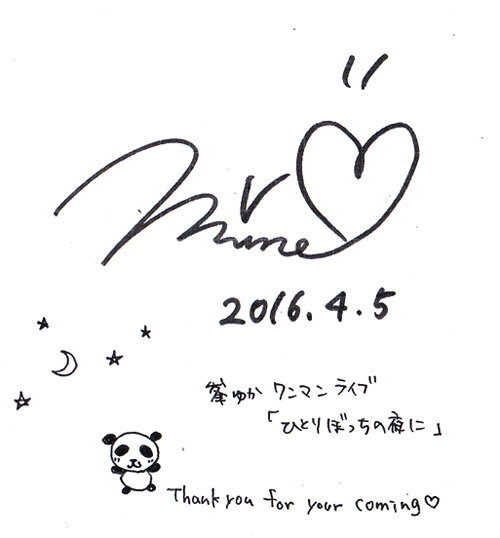 Mine
2016.4.5
峯ゆか ワンマンライブ
「ひとりぼっちの夜に」
Thank you for your coming♡